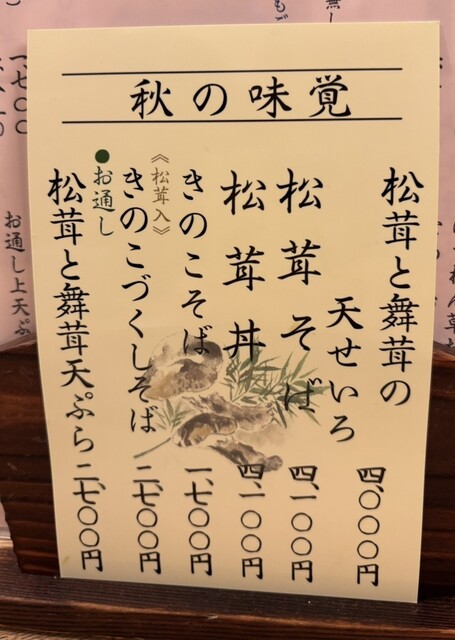 秋の味覚
松茸と舞茸の
天せいろ 四、〇〇〇円
松茸そば 四、一〇〇円
松茸丼 四、一〇〇円
きのこそば 一、七〇〇円
《松茸入》
きのこづくしそば 二、七〇〇円
●お通し
松茸と舞茸天ぷら 二、七〇〇円
お通し上天ぷ